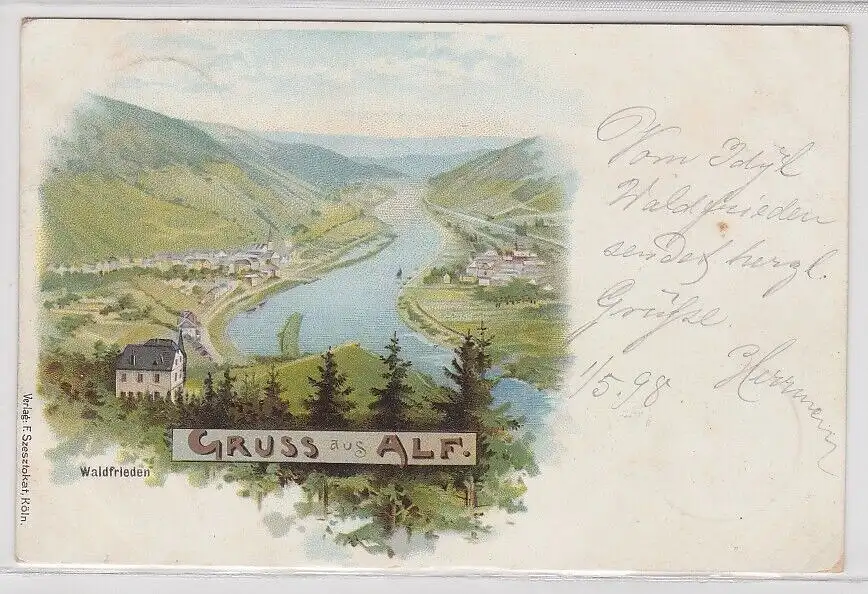 Vom Idyll
Waldfrieden
sendet herzl.
Grüße.
1/5.98. Herrmann
GRUSS aus ALF.
Waldfrieden
Verlag: F. Szesztokat, Köln.